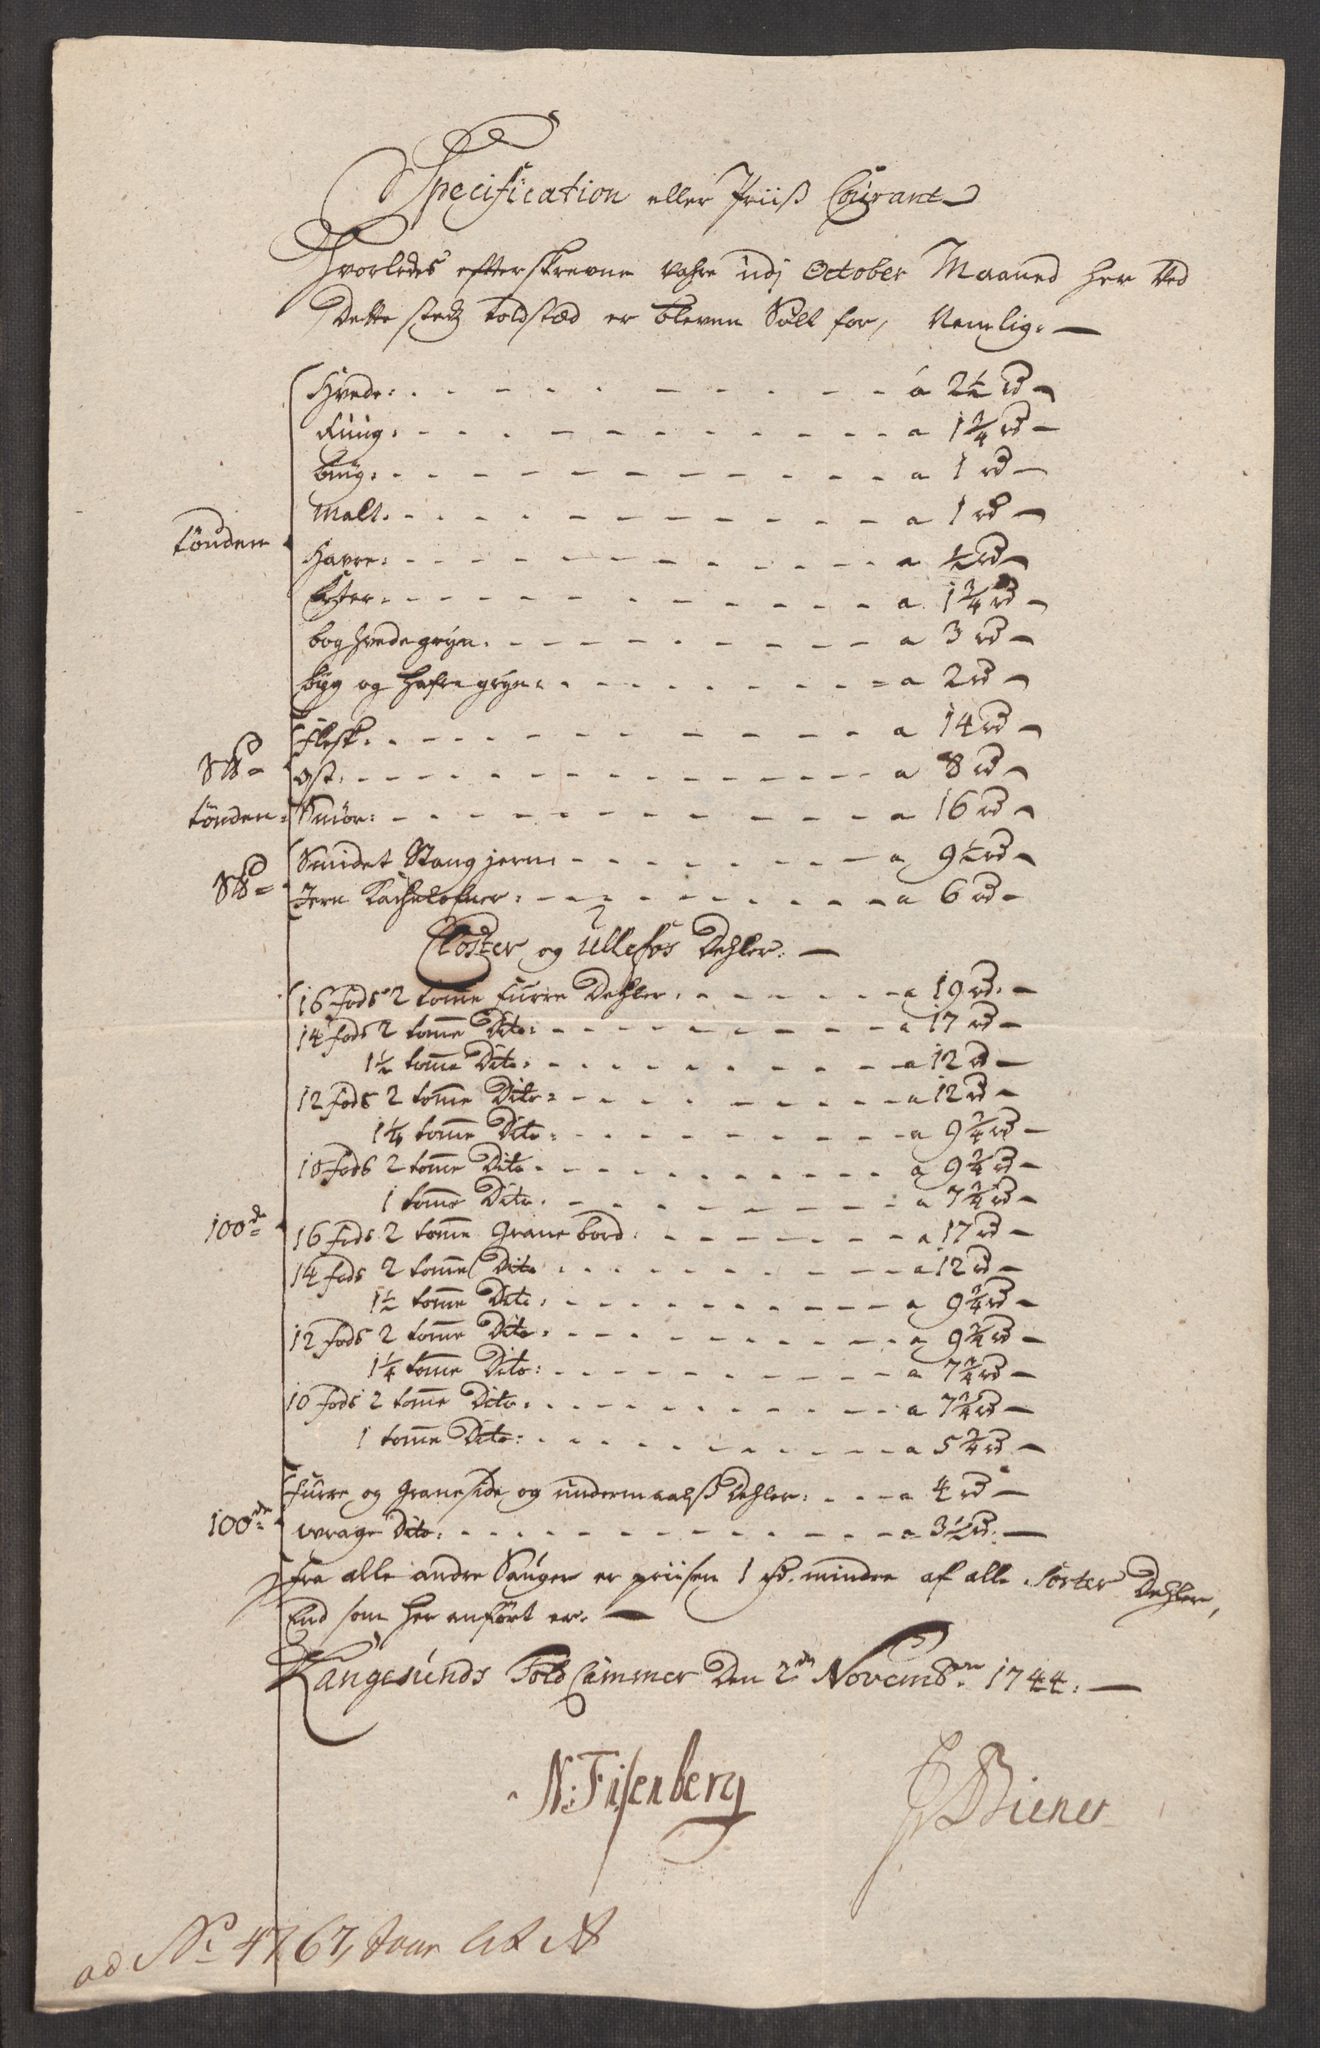 Specification eller Priiß Courant
Hvorledes efterskrevne Vahre udj October Maaned her ved
Dette stedz toldstæd er bleven Solt for, Nemlig:
Hvede: a 2½ rd
Rug: a 1¾ rd
biug: a 1 rd
Malt: a 1 rd
tönden
Havre: a ½ rd
Erter: a 1¾ rd
boghvedegryn: a 3 rd
byg og hafregryn: a 2 rd
Flesk: a 14 rd
S℔ ost: a 8 rd
tönden: Smör: a 16 rd
Smidet Stangjern: a 9½ rd
S℔ Jern Kachelofner: a 6 rd
Closter og Ullefos Dehler:
16 fods 2 tomme furre Dehler: a 19 rd
14 fods 2 tomme Dito: a 17 rd
1½ tomme Dito: a 12 rd
12 fods 2 tomme Dito: a 12 rd
1¼ tomme Dito: a 9¾ rd
10 fods 2 tomme Dito a 9¾ rd
1 tomme Dito: a 7¾ rd
100de 16 fods 2 tomme Grane bord: a 17 rd
14 fods 2 tomme Dito a 12 rd
1½ tomme Dito: a 9¾ rd
12 fods 2 tomme Dito: a 9¾ rd
1¼ tomme Dito: a 7¾ rd
10 fods 2 tomme Dito: a 7¾ rd
1 tomme Dito: a 5¾ rd
Furre og Graneside og undermaalß Dehler: a 4 rd
100de wrage Dito: a 3½ rd
Fra alle andre Sauger er priisen 1 rd. mindre af alle Sorter Dehler,
End som her anfört er.
Langesunds Told Cammer Den 2den Novembr. 1744.
N: Fisenberg
Biener
ad No. 4767, Lit A